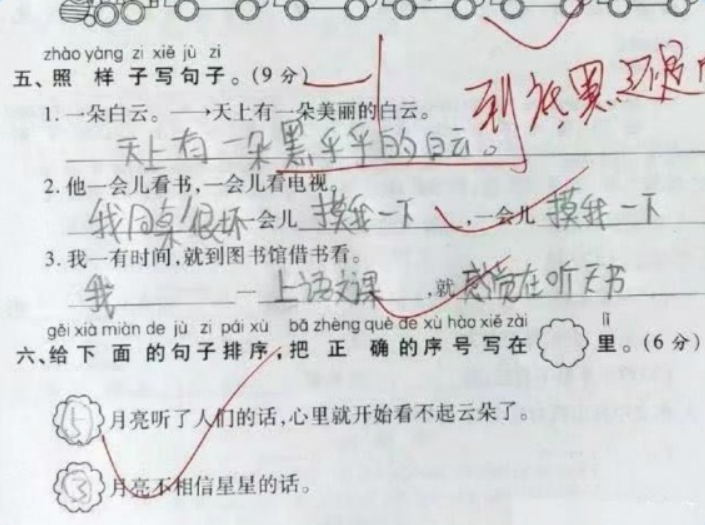 zhào yàng zi xiě jù zi
五、照 样 子写句子。(9 分)
到底黑还是
1. 一朵白云。⟶天上有一朵美丽的白云。
天上有一朵黑乎乎的白云。
2. 他一会儿看书,一会儿看电视。
我同桌很坏一会儿摸我一下,一会儿摸我一下
3. 我一有时间,就到图书馆借书看。
我一上语文课,就感觉在听天书
gěi xià miàn de jù zi pái xù bǎ zhèng què de xù hào xiě zài lǐ
六、给 下 面 的句子排序,把 正 确的序号写在 里。(6 分)
5 月亮听了人们的话,心里就开始看不起云朵了。
3 月亮不相信星星的话。